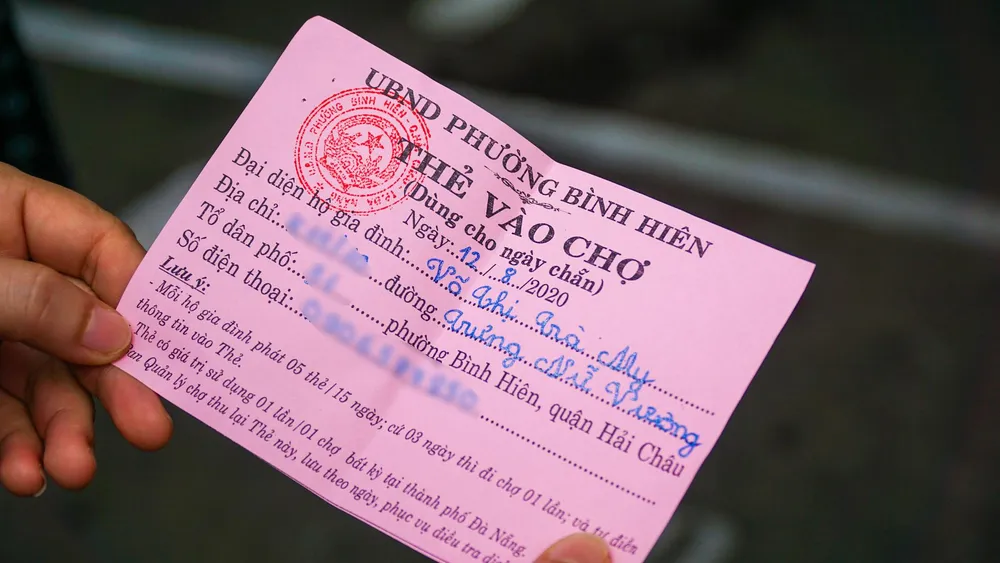 UBND PHƯỜNG BÌNH HIÊN
THẺ VÀO CHỢ
(Dùng cho ngày chẵn)
Ngày: 12/ 8 /2020
Đại diện hộ gia đình: Võ Thị Trà My
Địa chỉ: đường Trưng Nữ Vương
Tổ dân phố: phường Bình Hiên, quận Hải Châu
Số điện thoại:
Lưu ý:
- Mỗi hộ gia đình phát 05 thẻ/15 ngày; cứ 03 ngày thì đi chợ 01 lần; và tự điền
thông tin vào Thẻ.
Thẻ có giá trị sử dụng 01 lần/01 chợ bất kỳ tại thành phố Đà Nẵng.
Quản lý chợ thu lại Thẻ này, lưu theo ngày, phục vụ điều tra
PHƯỜNG BÌNH HIÊN